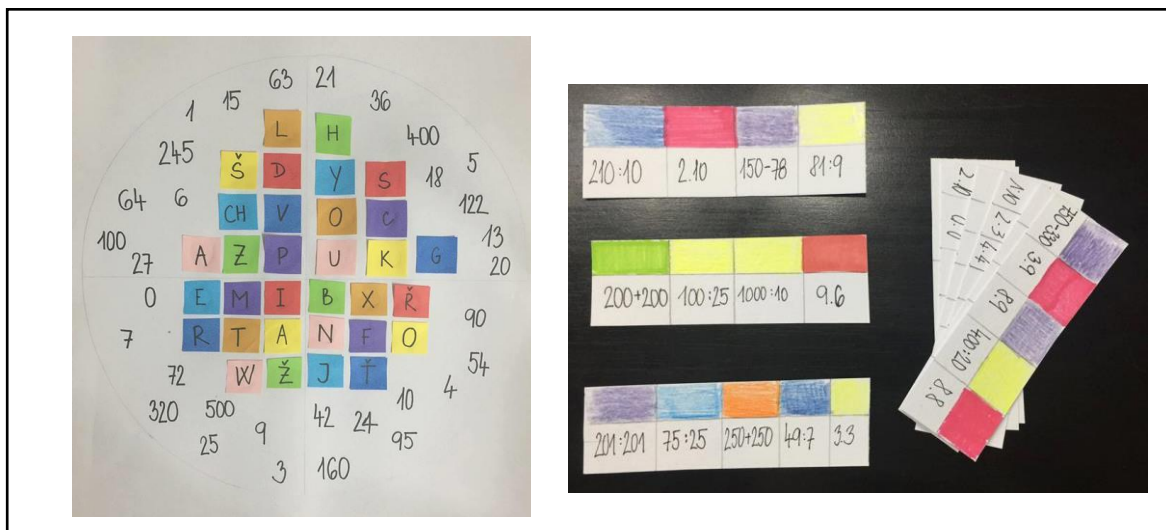 63 21
1 15 36
L H 400
245 Š D Y S 18 5
64 6 CH V O C 122
100 27 A Z P U K G 13 20
0 E M I B X Ř 90
7 R T A N F O 54
72 W Ž J Ť 4
320 500 42 24 10
25 9 95
3 160
210:10 2.10 150-78 81:9
200+200 100:25 1000:10 9.6
201:201 75:25 250+250 49:7 3.3
2.10
1.10 2.3 4.4
3.9 8.9 400:20 8.8